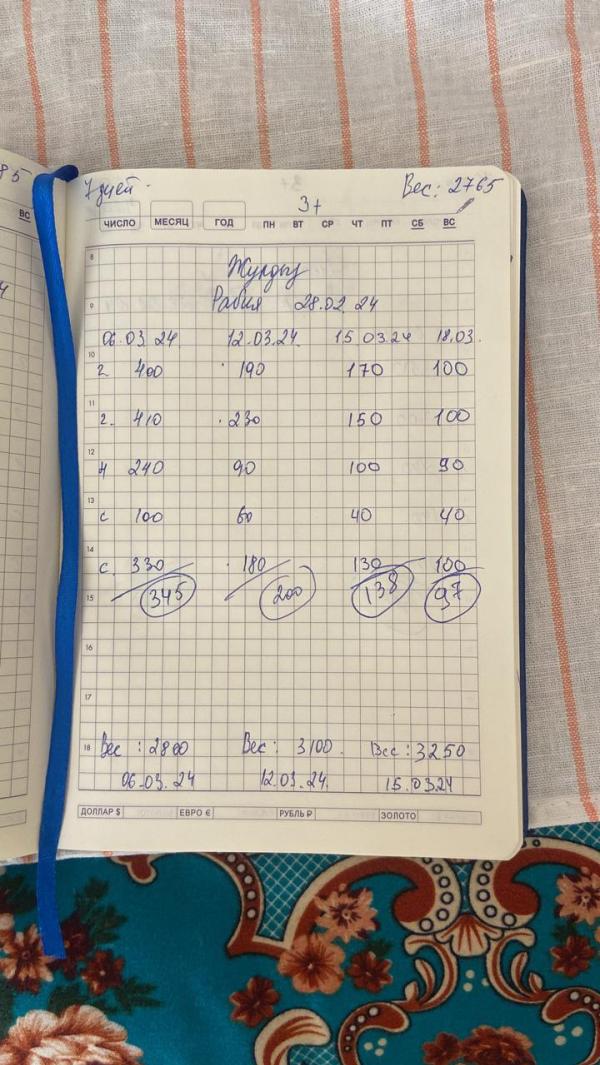 85
ВС
7 дней. Вес: 2765
3+
ЧИСЛО МЕСЯЦ ГОД ПН ВТ СР ЧТ ПТ СБ ВС
8
Жулдыз
9 Рабия 28.02.24
06.03.24 12.03.24. 15.03.24 18.03.
10
г 400 190 170 100
11
г. 410 230 150 100
12
н 240 90 100 90
13
с 100 60 40 40
14
с. 330 180 130 100
15 345 200 138 97
16
17
18 Вес: 2800 Вес: 3100. Вес: 3250
06.03.24 12.03.24. 15.03.24
ДОЛЛАР $ ЕВРО € РУБЛЬ ₽ ЗОЛОТО